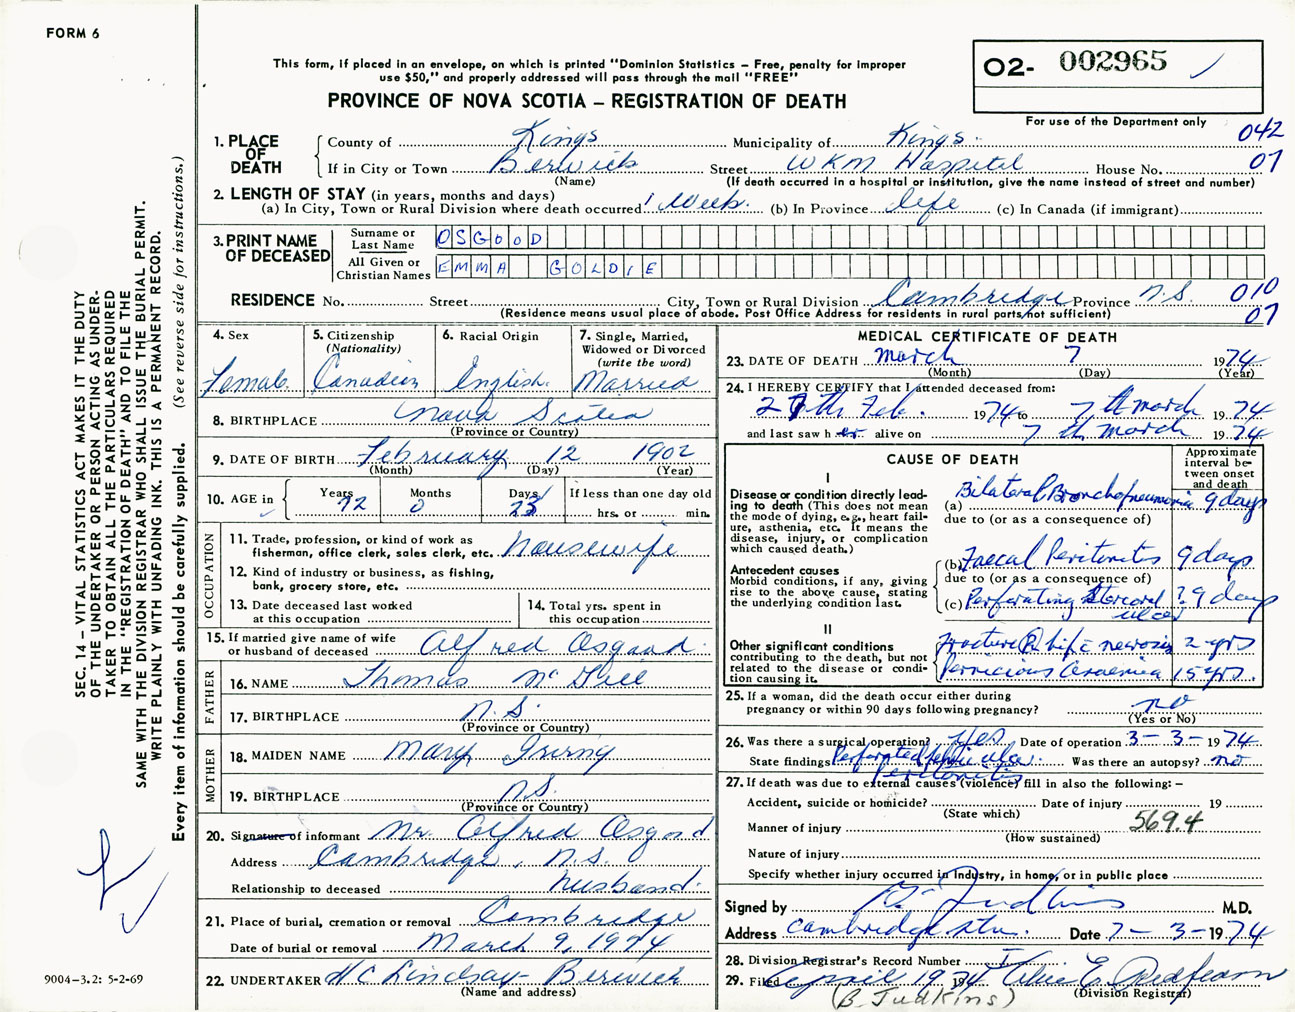 FORM 6
This form, if placed in an envelope, on which is printed "Dominion Statistics – Free, penalty for improper
use $50," and properly addressed will pass through the mail "FREE"
PROVINCE OF NOVA SCOTIA – REGISTRATION OF DEATH
O2- 002965
For use of the Department only
042
07
1. PLACE OF DEATH
County of Kings Municipality of Kings
If in City or Town Berwick Street WKM Hospital House No.
(Name) (If death occurred in a hospital or institution, give the name instead of street and number)
2. LENGTH OF STAY (in years, months and days)
(a) In City, Town or Rural Division where death occurred 1 week. (b) In Province life (c) In Canada (if immigrant)
3. PRINT NAME OF DECEASED
Surname or Last Name OSGOOD
All Given or Christian Names EMMA GOLDIE
RESIDENCE No. Street City, Town or Rural Division Cambridge Province N.S. 010
(Residence means usual place of abode. Post Office Address for residents in rural parts not sufficient) 07
4. Sex
Female
5. Citizenship
(Nationality)
Canadian
6. Racial Origin
English
7. Single, Married,
Widowed or Divorced
(write the word)
Married
8. BIRTHPLACE Nova Scotia
(Province or Country)
9. DATE OF BIRTH February 12 1902
(Month) (Day) (Year)
10. AGE in Years 72 Months 0 Days 23 If less than one day old
hrs. or min.
OCCUPATION
11. Trade, profession, or kind of work as
fisherman, office clerk, sales clerk, etc. Housewife
12. Kind of industry or business, as fishing,
bank, grocery store, etc.
13. Date deceased last worked
at this occupation
14. Total yrs. spent in
this occupation
15. If married give name of wife
or husband of deceased Alfred Osgood
FATHER
16. NAME Thomas McGill
17. BIRTHPLACE N.S.
(Province or Country)
MOTHER
18. MAIDEN NAME Mary Irving
19. BIRTHPLACE N.S.
(Province or Country)
20. Signature of informant Mr Alfred Osgood
Address Cambridge, N.S.
Relationship to deceased husband
21. Place of burial, cremation or removal Cambridge
Date of burial or removal March 9, 1974
22. UNDERTAKER H C Lindsay Berwick
(Name and address)
MEDICAL CERTIFICATE OF DEATH
23. DATE OF DEATH March 7 1974
(Month) (Day) (Year)
24. I HEREBY CERTIFY that I attended deceased from:
27th Feb. 1974 to 7th March 1974
and last saw her alive on 7th March 1974
CAUSE OF DEATH
Approximate
interval be-
tween onset
and death
I
Disease or condition directly lead-
ing to death (This does not mean
the mode of dying, e.g., heart fail-
ure, asthenia, etc. It means the
disease, injury, or complication
which caused death.)
(a) Bilateral Bronchopneumonia 9 days
due to (or as a consequence of)
Antecedent causes
Morbid conditions, if any, giving
rise to the above cause, stating
the underlying condition last.
(b) Faecal Peritonitis 9 days
due to (or as a consequence of)
(c) Perforating Stercoral ulcer ? 9 days
II
Other significant conditions
contributing to the death, but not
related to the disease or condi-
tion causing it.
Fracture R hip c necrosis 2 yrs
Pernicious Anaemia 15 yrs
25. If a woman, did the death occur either during
pregnancy or within 90 days following pregnancy? no
(Yes or No)
26. Was there a surgical operation? Yes Date of operation 3-3-1974
State findings Perforated ulcer Was there an autopsy? no
Peritonitis
27. If death was due to external causes (violence) fill in also the following:–
Accident, suicide or homicide? Date of injury 19
(State which)
Manner of injury 569.4
(How sustained)
Nature of injury
Specify whether injury occurred in industry, in home, or in public place
Signed by B. Judkins M.D.
Address Cambridge Stn. Date 7-3-1974
28. Division Registrar's Record Number
29. Filed April 1974 E. Redfearn
(B. Judkins) (Division Registrar)
SEC. 14 – VITAL STATISTICS ACT MAKES IT THE DUTY
OF THE UNDERTAKER OR PERSON ACTING AS UNDER-
TAKER TO OBTAIN ALL THE PARTICULARS REQUIRED
IN THE "REGISTRATION OF DEATH" AND TO FILE THE
SAME WITH THE DIVISION REGISTRAR WHO SHALL ISSUE THE BURIAL PERMIT.
WRITE PLAINLY WITH UNFADING INK. THIS IS A PERMANENT RECORD.
Every item of information should be carefully supplied. (See reverse side for instructions.)
9004-3.2: 5-2-69